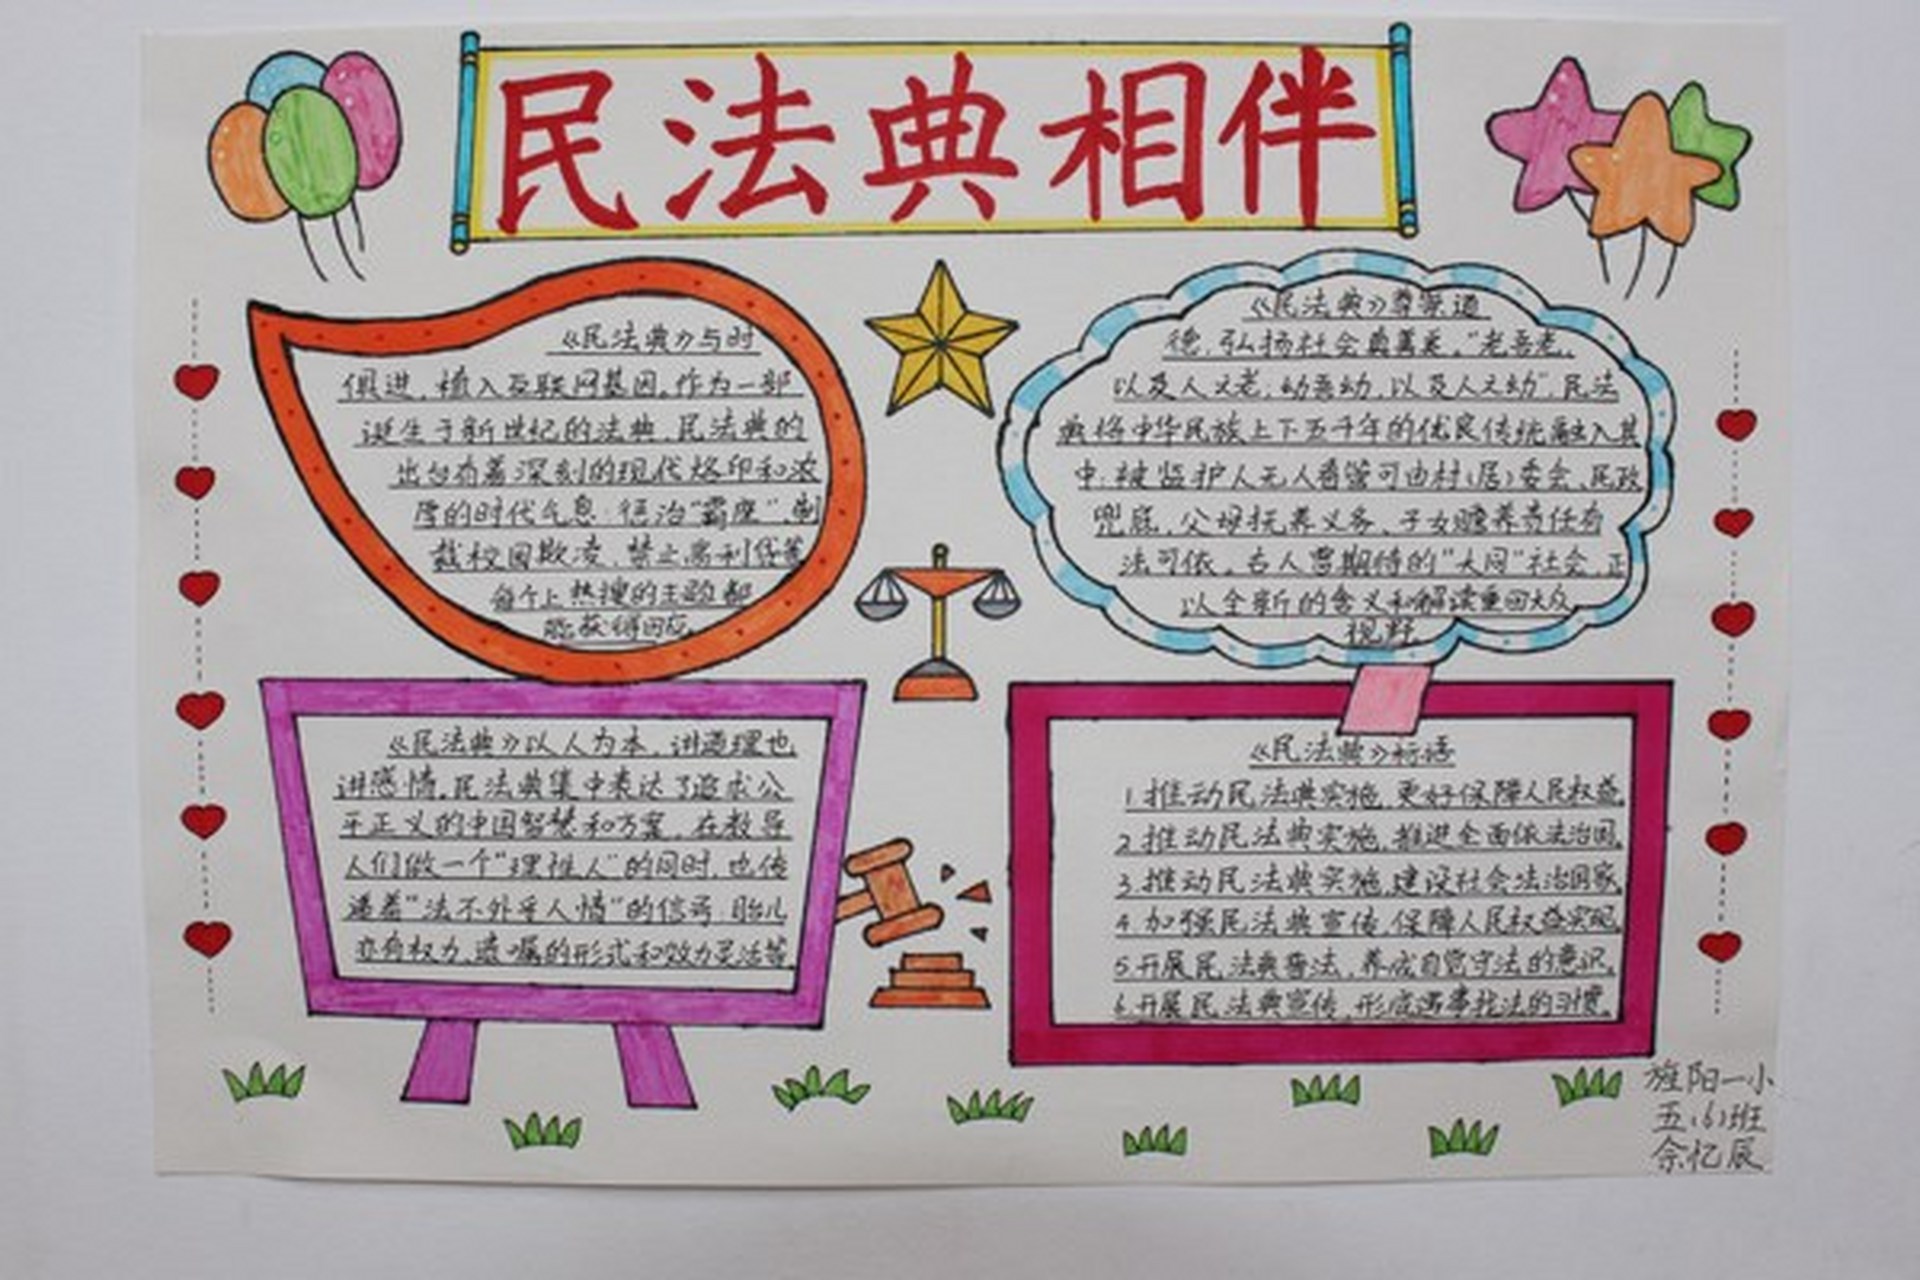 民法典相伴
《民法典》与时
俱进，植入互联网基因。作为一部
诞生于新世纪的法典，民法典的
出台有着深刻的现代烙印和浓
厚的时代气息：惩治“霸座”、制
裁校园欺凌、禁止高利贷等
每个上热搜的主题都
能获得回应。
《民法典》尊崇道
德，弘扬社会真善美。“老吾老，
以及人之老；幼吾幼，以及人之幼”，民法
典将中华民族上下五千年的优良传统融入其
中：被监护人无人看管可由村（居）委会、民政
兜底，父母抚养义务、子女赡养责任有
法可依。古人曾期待的“大同”社会，正
以全新的含义和解读重回大众
视野。
《民法典》以人为本，讲道理也
讲感情。民法典集中表达了追求公
平正义的中国智慧和方案，在教导
人们做一个“理性人”的同时，也传
递着“法不外乎人情”的信号：胎儿
亦有权力、遗嘱的形式和效力灵活等。
《民法典》标语
1.推动民法典实施，更好保障人民权益。
2.推动民法典实施，推进全面依法治国。
3.推动民法典实施，建设社会法治国家。
4.加强民法典宣传，保障人民权益实现。
5.开展民法典普法，养成自觉守法的意识。
6.开展民法典宣传，形成遇事找法的习惯。
旌阳一小
五（6）班
余忆辰